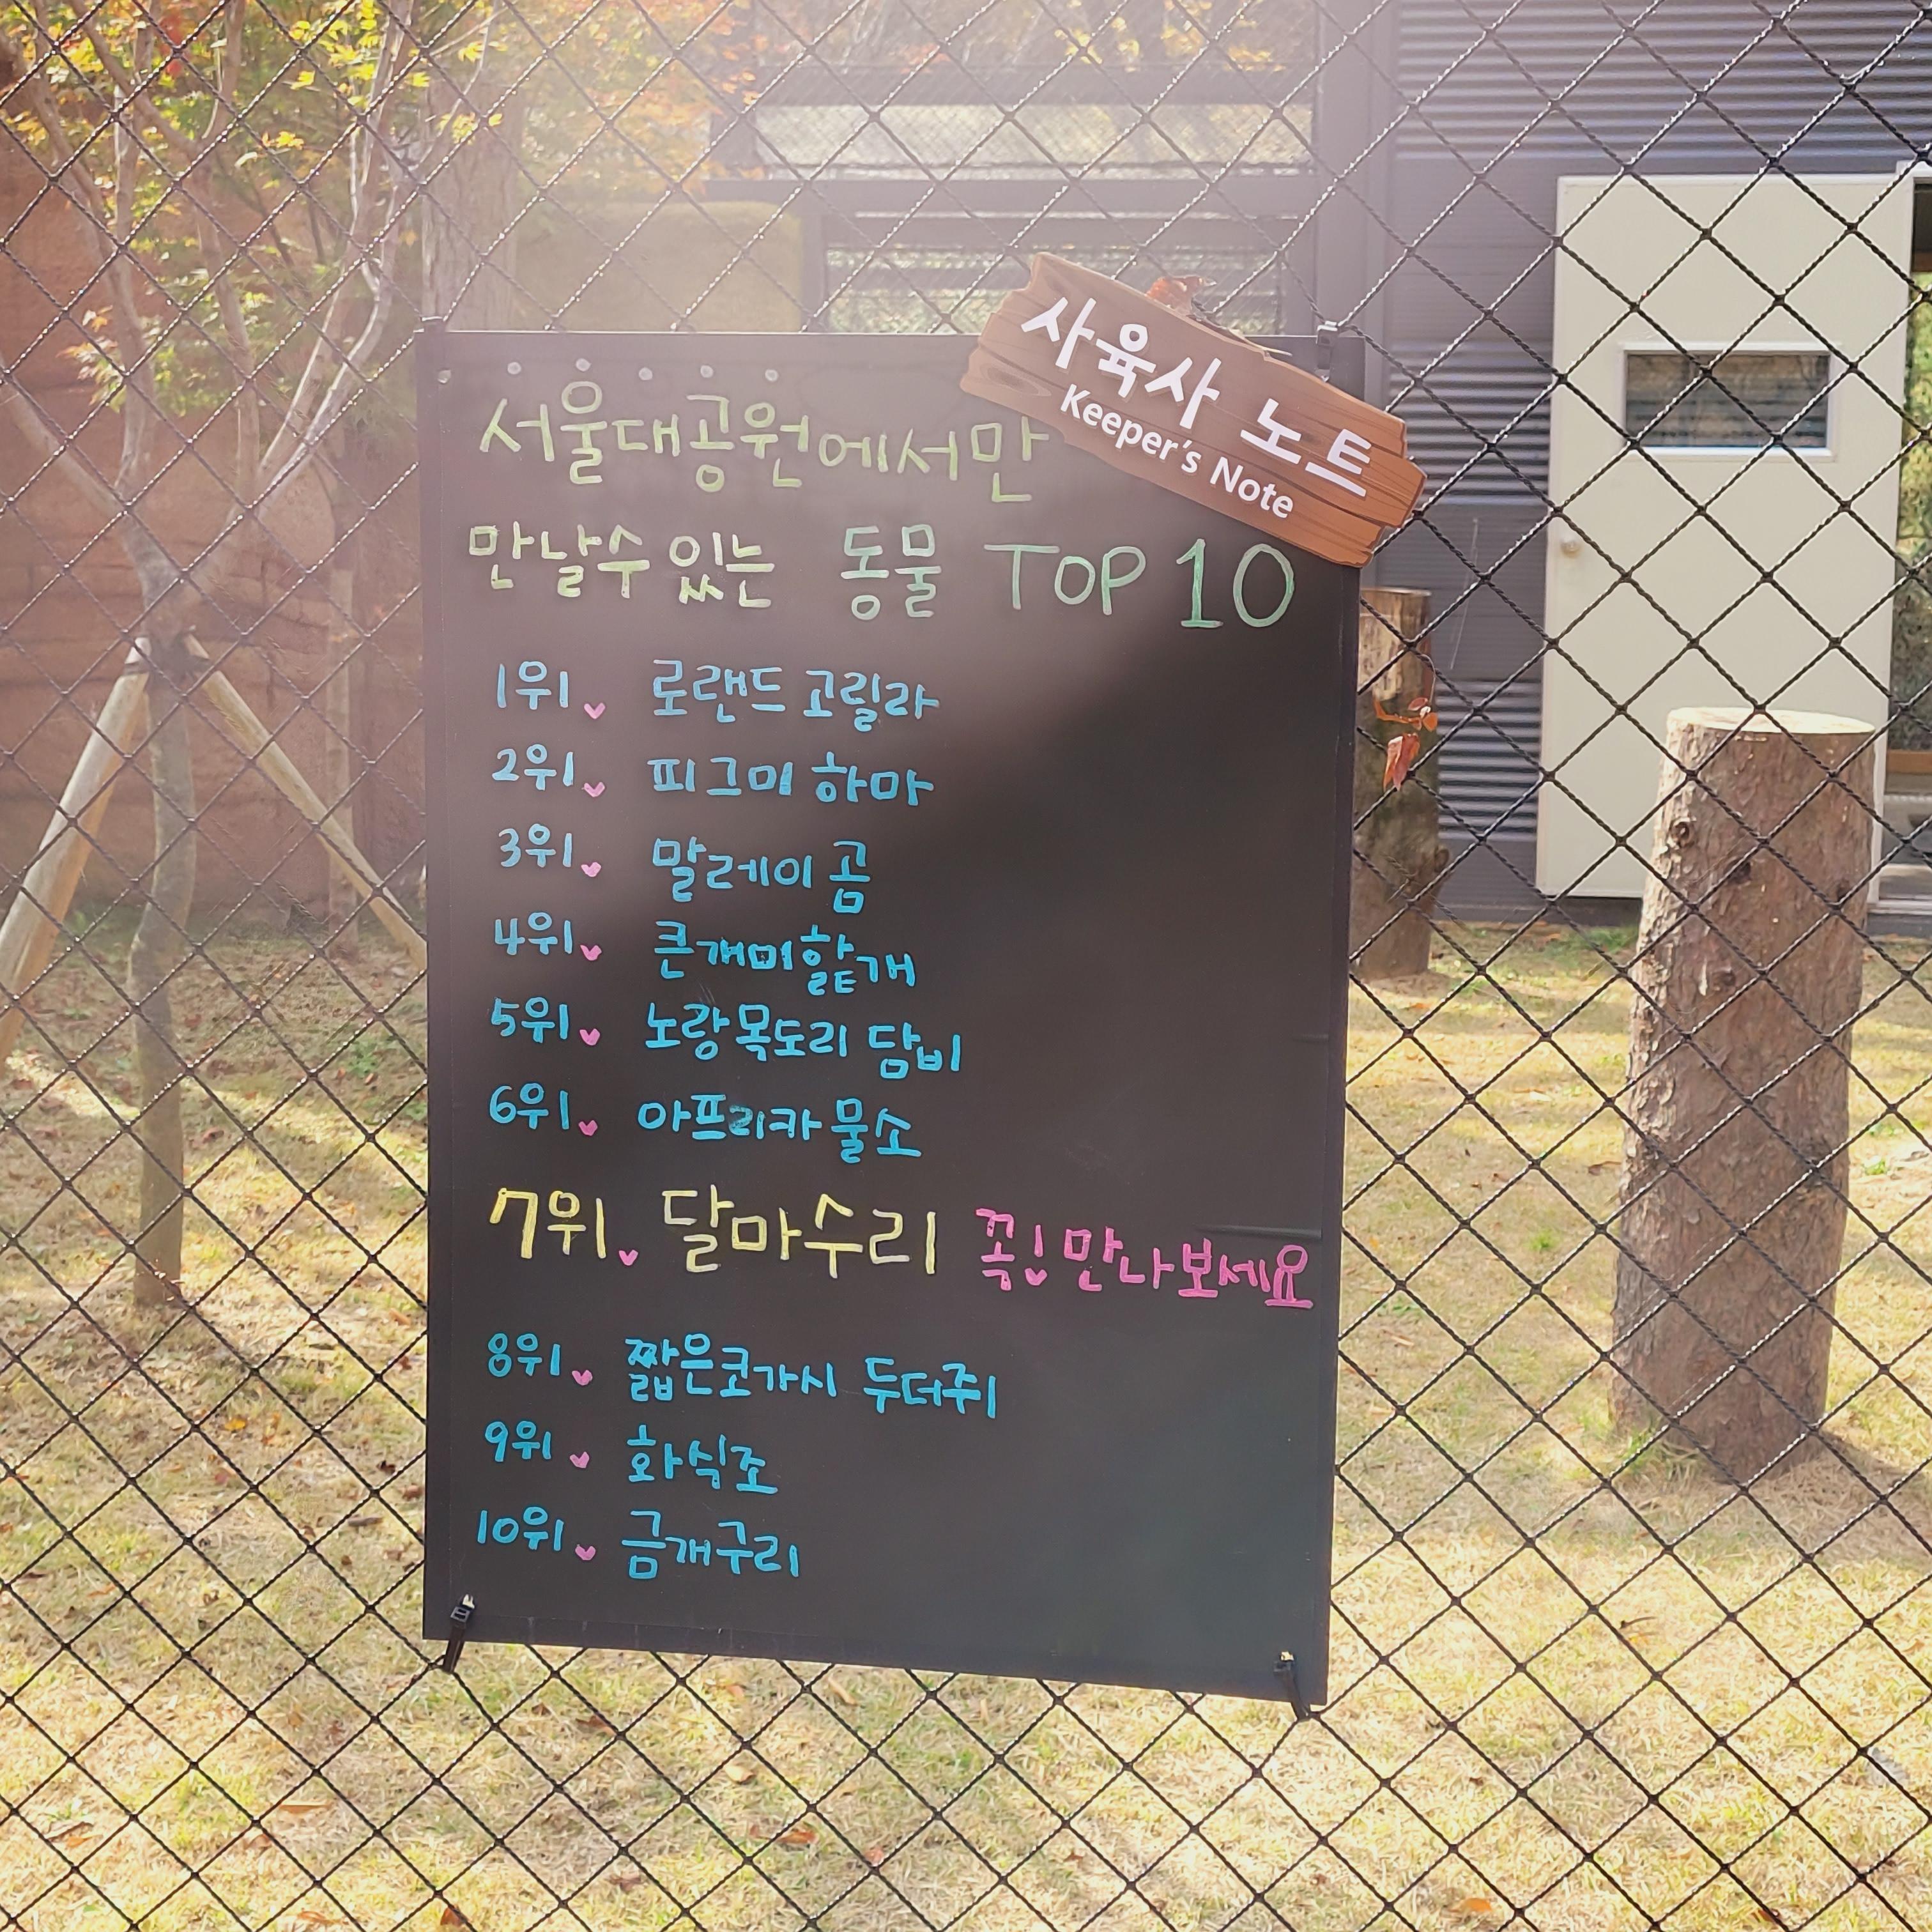 사육사 노트
Keeper's Note
서울대공원에서만
만날수 있는 동물 TOP 10
1위. 로랜드 고릴라
2위. 피그미 하마
3위. 말레이 곰
4위. 큰개미핥개
5위. 노랑목도리 담비
6위. 아프리카 물소
7위. 달마수리 꼭! 만나보세요
8위. 짧은코가시 두더쥐
9위. 화식조
10위. 금개구리